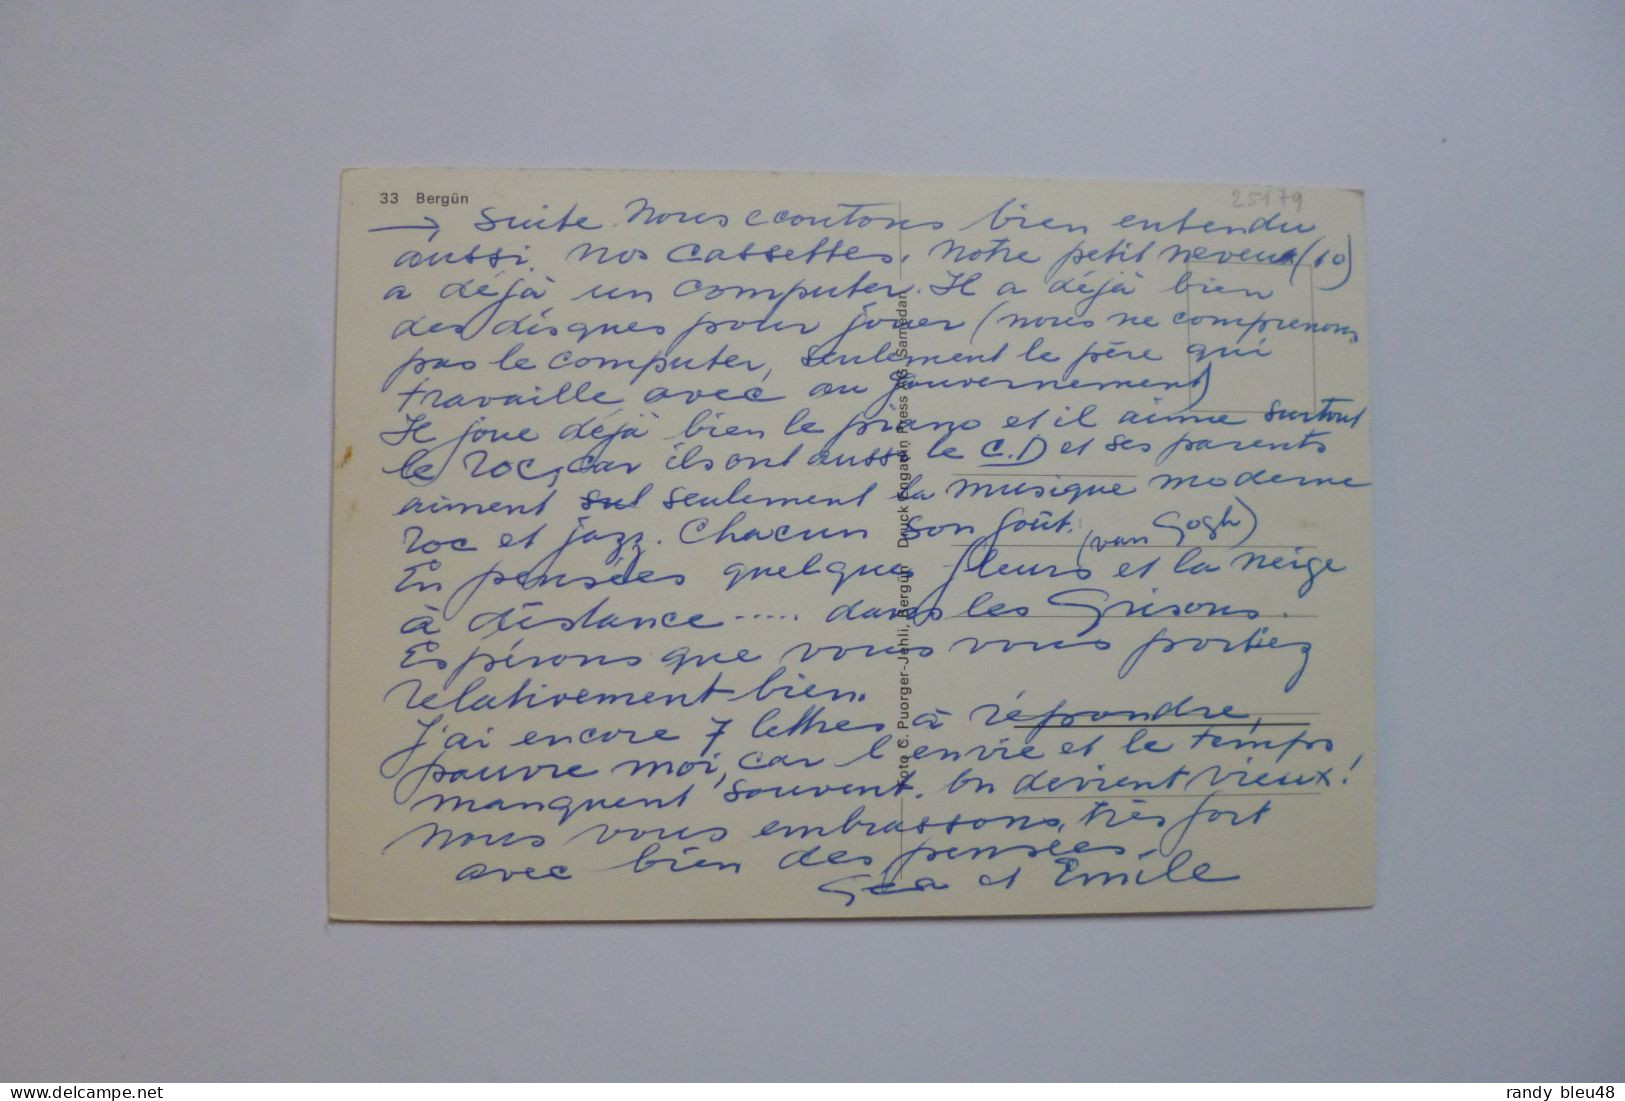 33 Bergün
25179
→ Suite. Nous ecoutons bien entendu
aussi nos cassettes. Notre petit neveux (10)
a déjà un computer. Il a déjà bien
des disques pour jouer (nous ne comprenons
pas le computer, seulement le père qui
travaille avec au gouvernement)
Il joue déjà bien le piano et il aime surtout
le roc, car ils ont aussi le C.D et ses parents
aiment sul seulement la musique moderne
roc et jazz. Chacun son goût.
(van Gogh)
En pensées quelques fleurs et la neige
à distance ..... dans les Grisons.
Espérons que vous vous portiez
relativement bien.
J'ai encore 7 lettres à répondre,
pauvre moi, car l'envie et le temps
manquent souvent. On devient vieux!
Nous vous embrassons, très fort
avec bien des pensées,
Géa et Emile
Foto C. Puorger-Jehli, Bergün Druck Engadin Press AG, Samedan
randy bleu48